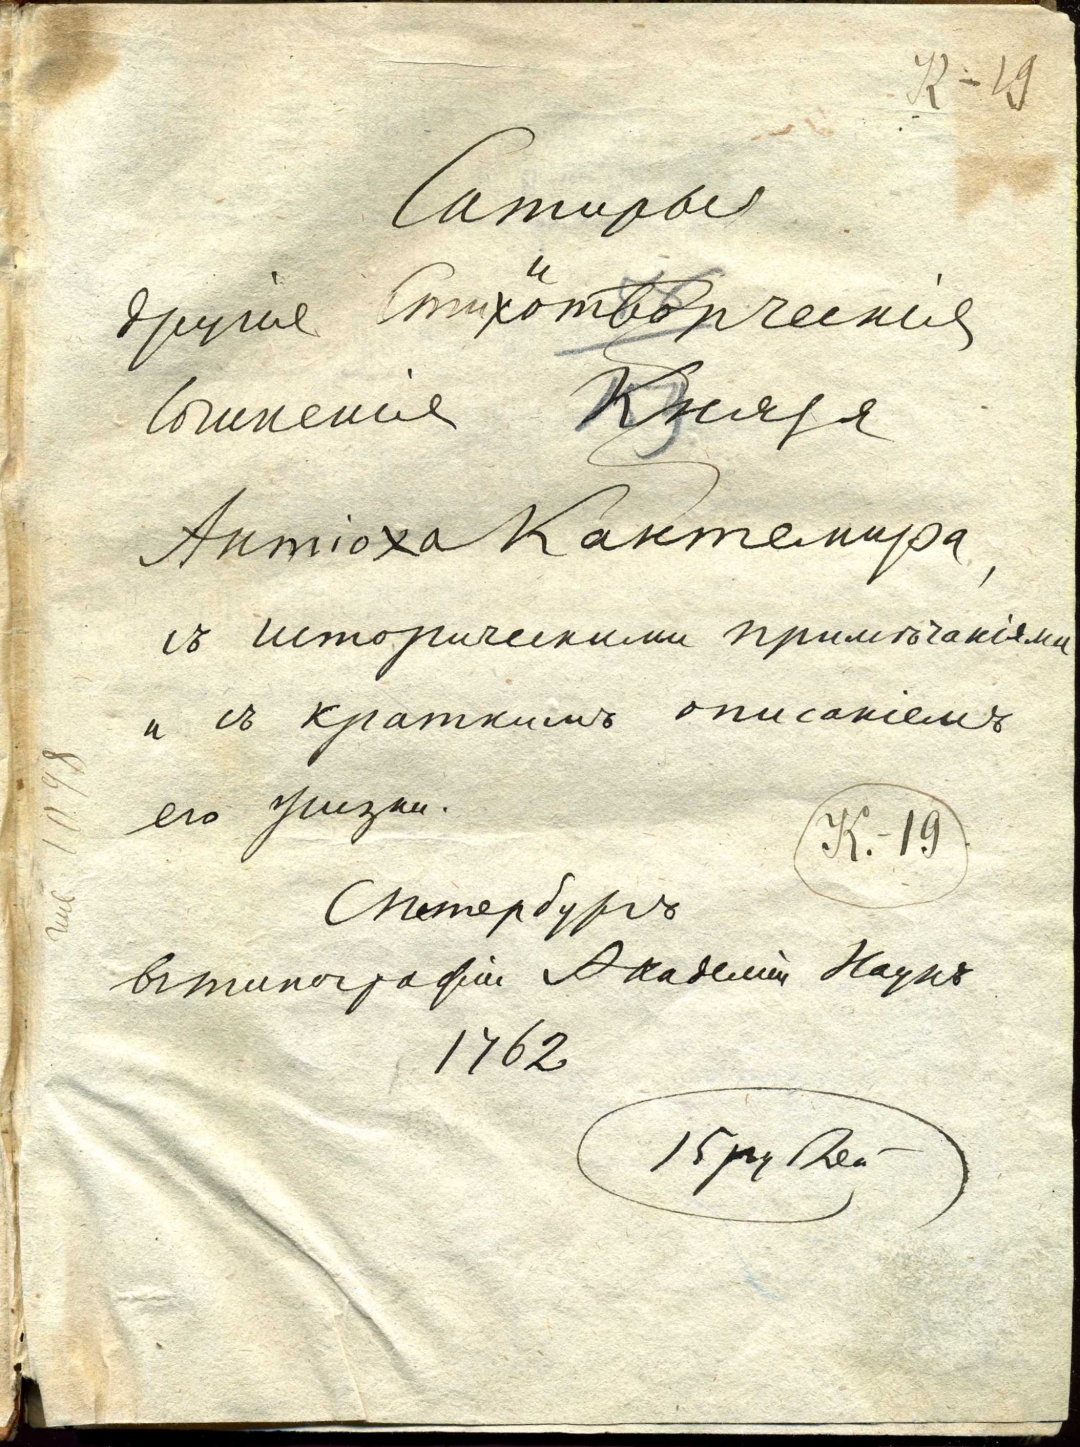 К-19
Сатиры
и
другіе Стихотворческіе
Сочиненіе Князя
Антіоха Кантемира,
съ историческими примѣчаніями
и съ краткимъ описаніемъ
его жизни.
К.-19
Спетербургъ
въ типографіи Академіи Наукъ
1762
15 рублей